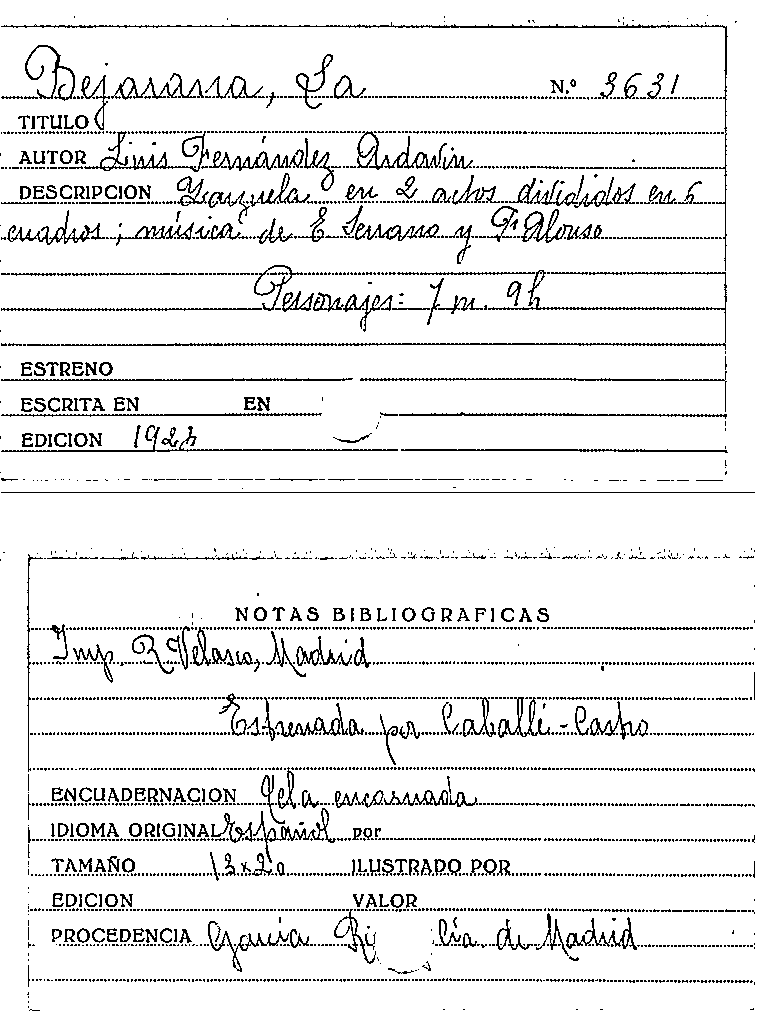 Bejarana, La N.º 3631
TITULO
AUTOR Luis Fernández Ardavin
DESCRIPCION Zarzuela en 2 actos divididos en 5
cuadros; música de E Serrano y Fº Alonso
Personajes: 7 m. 9h
ESTRENO
ESCRITA EN EN
EDICION
NOTAS BIBLIOGRAFICAS
Imp. R. Velasco, Madrid
Estrenada por Caballé-Castro
ENCUADERNACION Tela encarnada
IDIOMA ORIGINAL Español por
TAMAÑO 13x20 ILUSTRADO POR
EDICION VALOR
PROCEDENCIA García de Madrid